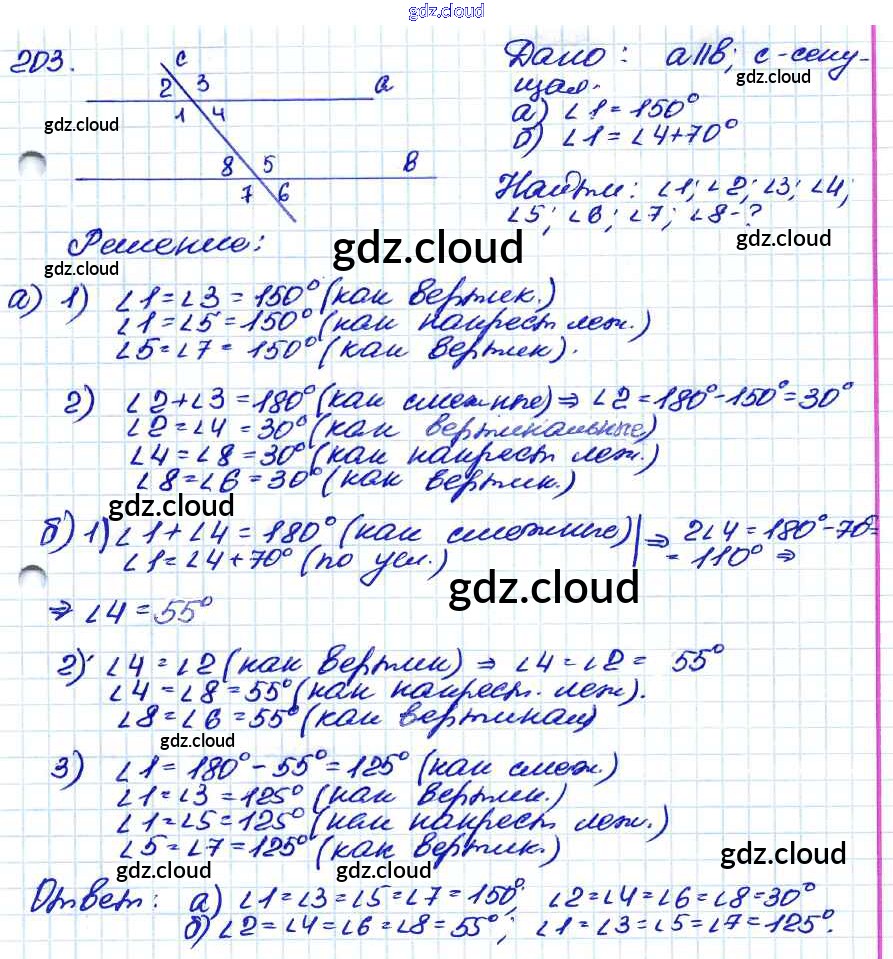 gdz.cloud
203.
c
2 3 a
1 4
8 5 в
7 6
Дано: a||в; c-секу-
щая.
а) ∠1=150°
б) ∠1=∠4+70°
Найти: ∠1; ∠2; ∠3; ∠4;
∠5; ∠6; ∠7; ∠8-?
gdz.cloud
gdz.cloud
gdz.cloud
gdz.cloud
Решение:
gdz.cloud
gdz.cloud
gdz.cloud
а) 1) ∠1=∠3=150° (как вертик.)
∠1=∠5=150° (как накрест леж.)
∠5=∠7=150° (как вертик).
2) ∠2+∠3=180° (как смежные) ⇒ ∠2=180°-150°=30°
∠2=∠4=30° (как вертикальные)
∠4=∠8=30° (как накрест леж.)
∠8=∠6=30° (как вертик.)
gdz.cloud
б) 1) ∠1+∠4=180° (как смежные) | ⇒ 2∠4=180°-70°=
∠1=∠4+70° (по усл.) | =110° ⇒
gdz.cloud
⇒ ∠4=55°
2) ∠4=∠2 (как вертик) ⇒ ∠4=∠2= 55°
∠4=∠8=55° (как накрест. леж).
∠8=∠6=55° (как вертикал)
gdz.cloud
3) ∠1=180°-55°=125° (как смеж.)
∠1=∠3=125° (как вертик.)
∠1=∠5=125° (как накрест леж.)
∠5=∠7=125° (как вертик.)
gdz.cloud
gdz.cloud
gdz.cloud
Ответ: а) ∠1=∠3=∠5=∠7=150°; ∠2=∠4=∠6=∠8=30°
б) ∠2=∠4=∠6=∠8=55°; ∠1=∠3=∠5=∠7=125°.